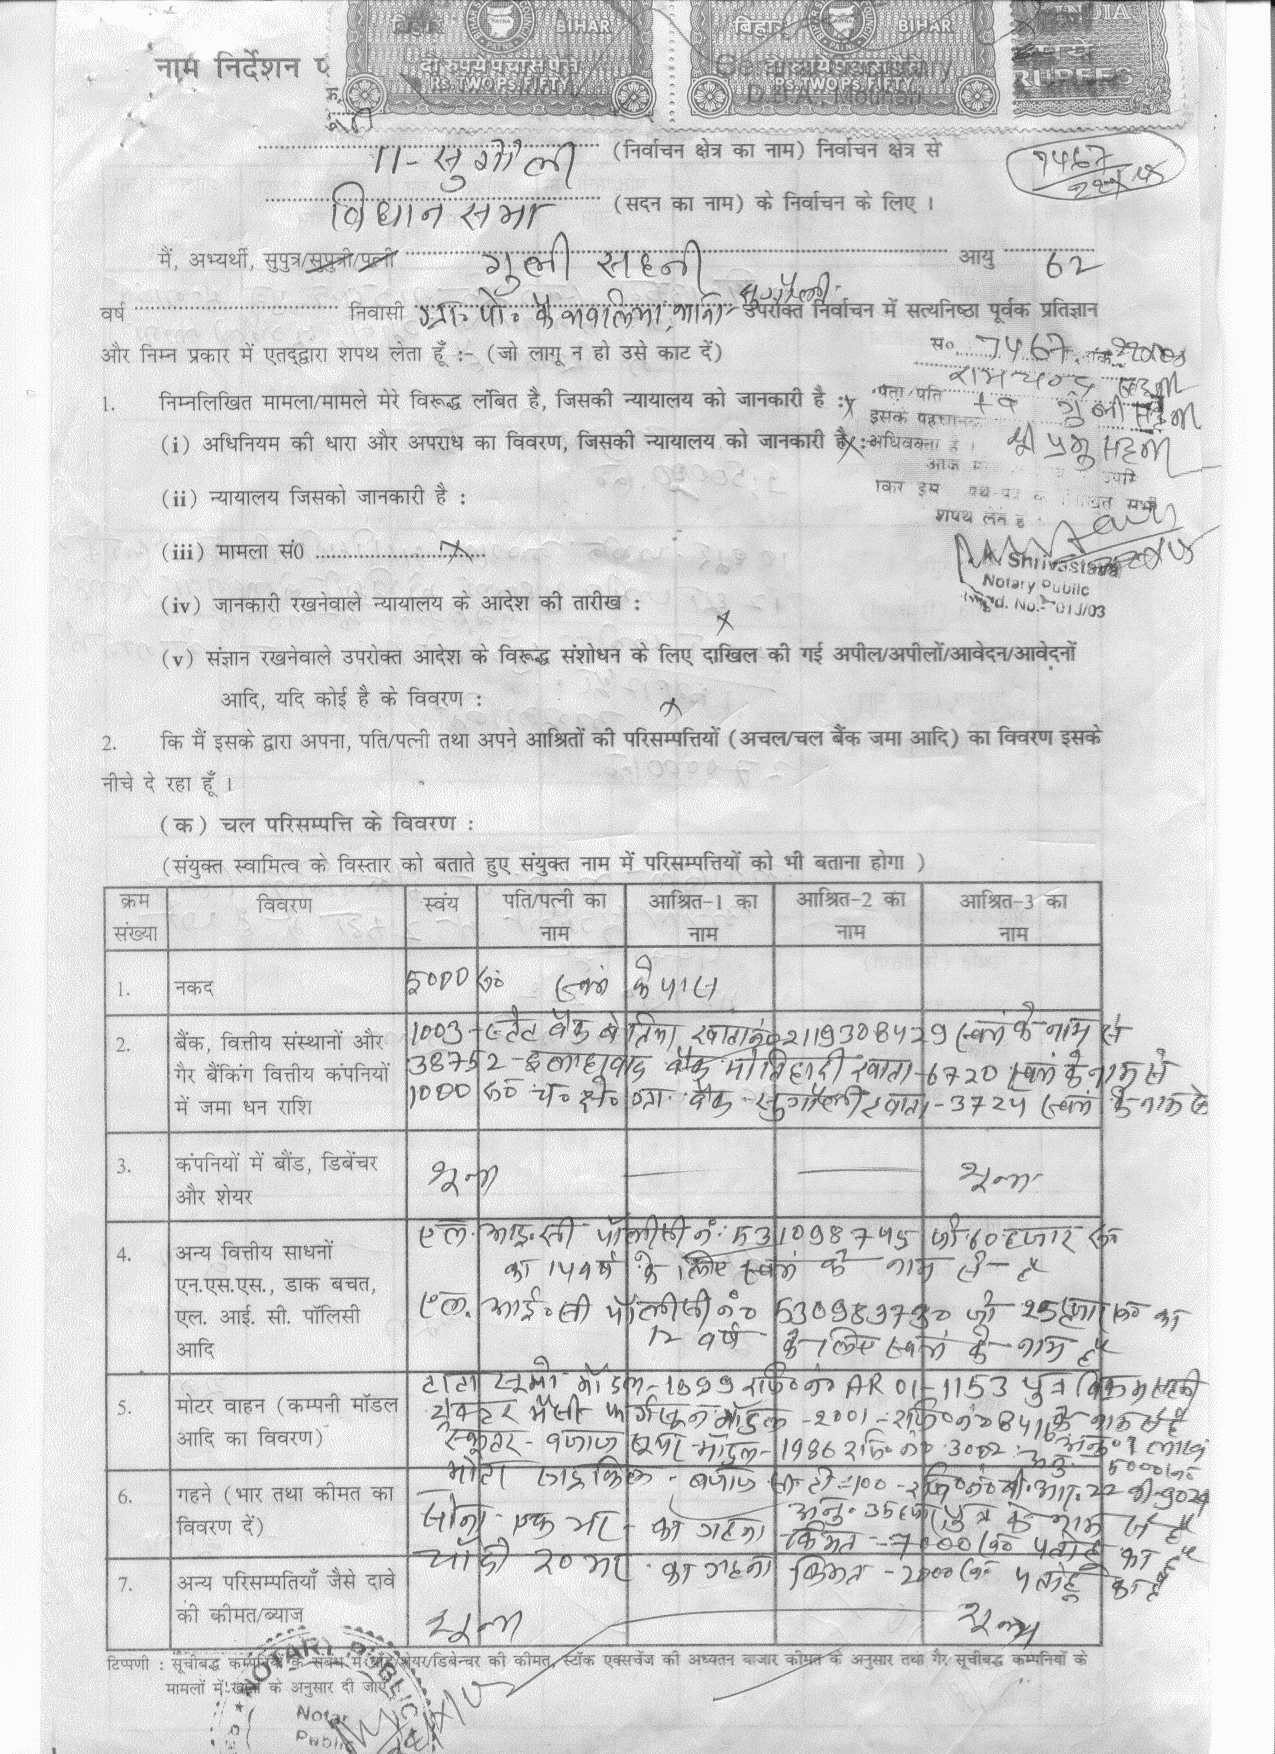 बिहार BIHAR
दो रुपये पचास पैसे
RS. TWO PS. FIFTY
बिहार BIHAR
दो रुपये पचास पैसे
RS. TWO PS. FIFTY
INDIA
RUPEES
नाम निर्देशन
11- सुगौली (निर्वाचन क्षेत्र का नाम) निर्वाचन क्षेत्र से
7467
विधान सभा (सदन का नाम) के निर्वाचन के लिए ।
मैं, अभ्यर्थी, सुपुत्र/सुपुत्री/पत्नी गुली सहनी आयु 62
वर्ष निवासी ग्रा॰ पो॰ कैथवलिया, थाना- सुगौली उपरोक्त निर्वाचन में सत्यनिष्ठा पूर्वक प्रतिज्ञान
और निम्न प्रकार में एतद्द्वारा शपथ लेता हूँ :- (जो लागू न हो उसे काट दें)
स० 7467
रामचन्द्र सहनी
पिता/पति स्व गुली सहनी
श्री प्रभु सहनी
अधिवक्ता है ।
शपथ लेते है
Shrivastava
Notary Public
Regd. No.-
1. निम्नलिखित मामला/मामले मेरे विरूद्ध लंबित है, जिसकी न्यायालय को जानकारी है : x
(i) अधिनियम की धारा और अपराध का विवरण, जिसकी न्यायालय को जानकारी है : x
(ii) न्यायालय जिसको जानकारी है :
(iii) मामला सं0 x
(iv) जानकारी रखनेवाले न्यायालय के आदेश की तारीख : x
(v) संज्ञान रखनेवाले उपरोक्त आदेश के विरूद्ध संशोधन के लिए दाखिल की गई अपील/अपीलों/आवेदन/आवेदनों
आदि, यदि कोई है के विवरण : x
2. कि मैं इसके द्वारा अपना, पति/पत्नी तथा अपने आश्रितों की परिसम्पत्तियों (अचल/चल बैंक जमा आदि) का विवरण इसके
नीचे दे रहा हूँ ।
(क) चल परिसम्पत्ति के विवरण :
(संयुक्त स्वामित्व के विस्तार को बताते हुए संयुक्त नाम में परिसम्पत्तियों को भी बताना होगा )
क्रम संख्या विवरण स्वंय पति/पत्नी का नाम आश्रित-1 का नाम आश्रित-2 का नाम आश्रित-3 का नाम
1. नकद 5000 रु० स्वयं के पास
2. बैंक, वित्तीय संस्थानों और
गैर बैंकिंग वित्तीय कंपनियों
में जमा धन राशि
1003 - स्टेट बैंक बेतिया, खाता नं० 2119308429 स्वयं के नाम से
38752 - इलाहाबाद बैंक मोतिहारी खाता - 6720 स्वयं के नाम से
1000 रु० च० क्षे० ग्रा० बैंक - सुगौली खाता - 3724 स्वयं के नाम से
3. कंपनियों में बौंड, डिबेंचर
और शेयर
शून्य शून्य
4. अन्य वित्तीय साधनों
एन.एस.एस., डाक बचत,
एल. आई. सी. पॉलिसी
आदि
एल. आइ. सी पॉलीसी नं॰ 531098745 जो 60 हजार रु०
का 14 वर्ष के लिए स्वयं के नाम से है
एल. आई॰ सी पॉलीसी नं० 530989730 जो 25 हजार रु० का
12 वर्ष के लिए स्वयं के नाम है
5. मोटर वाहन (कम्पनी मॉडल
आदि का विवरण)
टाटा सूमो मॉडल - 1999 रजि० नं० AR 01-1153 पुत्र विक्रम सहनी
ट्रैक्टर मैसी फर्गुसन मॉडल - 2001 - रजि० नं० 8416 के नाम से है
स्कूटर - बजाज सुपर - मॉडल - 1986 रजि० नं० 3002 अनु० 5000 रु०
मोटर साइकिल - बजाज सी. टी - 100 - रजि० नं० बी. आर. 22 बी - 9029
अनु० 35 हजार पुत्र के नाम से है
6. गहने (भार तथा कीमत का
विवरण दें)
सोना - एक भर - का गहना किमत - 7000 रु० पतोहू का है
चाँदी 20 भर का गहना किमत - 2000 रु० पतोहू का है
7. अन्य परिसम्पतियाँ जैसे दावे
की कीमत/ब्याज
शून्य शून्य
टिप्पणी : सूचीबद्ध कम्पनियों के संबंध में बौंड/शेयर/डिबेन्चर की कीमत, स्टॉक एक्सचेंज की अध्यतन बाजार कीमत के अनुसार तथा गैर सूचीबद्ध कम्पनियों के
मामलों में खातों के अनुसार दी जाए
NOTARY PUBLIC
Notary
Public